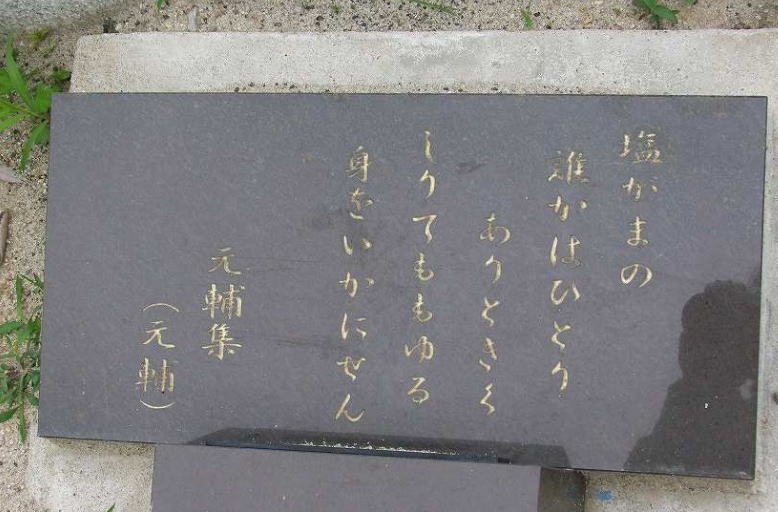 塩がまの
誰かはひとり
ありときく
しりてももゆる
身をいかにせん
元輔集
（元輔）